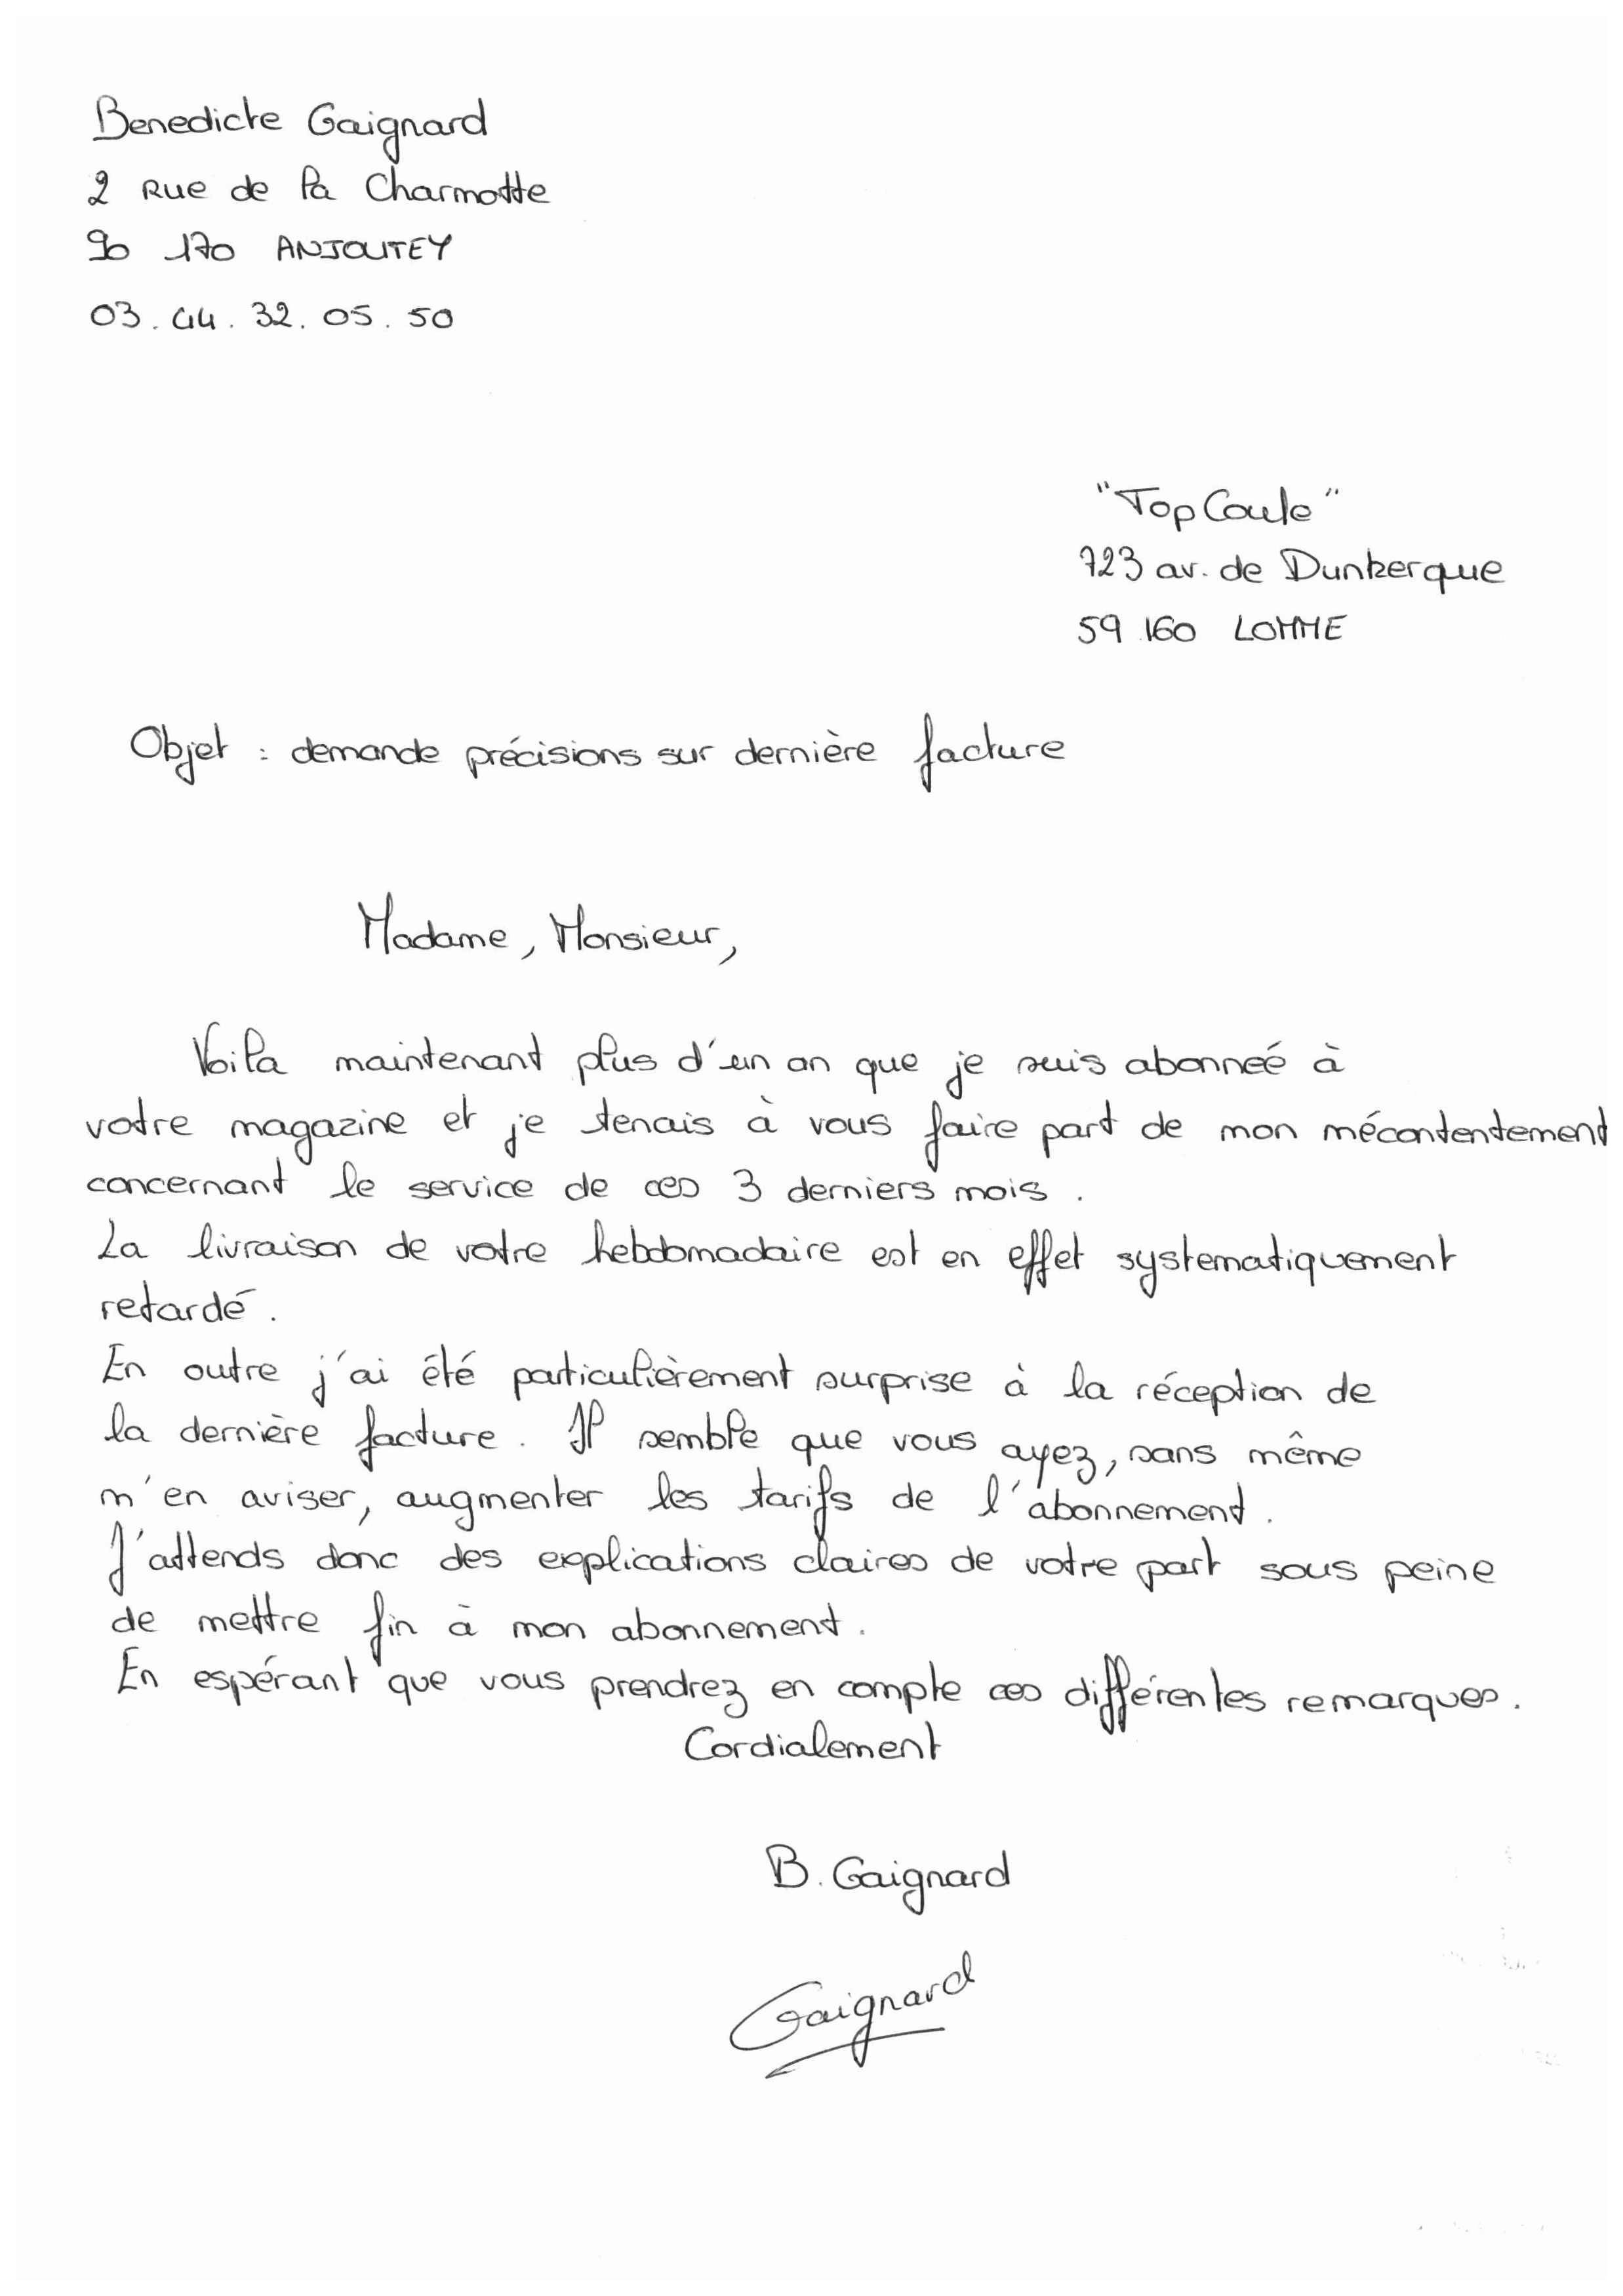 Benedicte Gaignard
2 Rue de la Charmotte
90 170 ANJOUTEY
03.44.32.05.50
"TopCoule"
723 av. de Dunkerque
59 160 LOMME
Objet : demande précisions sur dernière facture
Madame, Monsieur,
Voila maintenant plus d'un an que je suis abonneé à
votre magazine et je tenais à vous faire part de mon mécontentement
concernant le service de ces 3 derniers mois.
La livraison de votre hebdomadaire est en effet systematiquement
retardé.
En outre j'ai été particulièrement surprise à la réception de
la dernière facture. Il semble que vous ayez, sans même
m'en aviser, augmenter les tarifs de l'abonnement.
J'attends donc des explications claires de votre part sous peine
de mettre fin à mon abonnement.
En espérant que vous prendrez en compte ces différentes remarques.
Cordialement
B. Gaignard
Gaignard